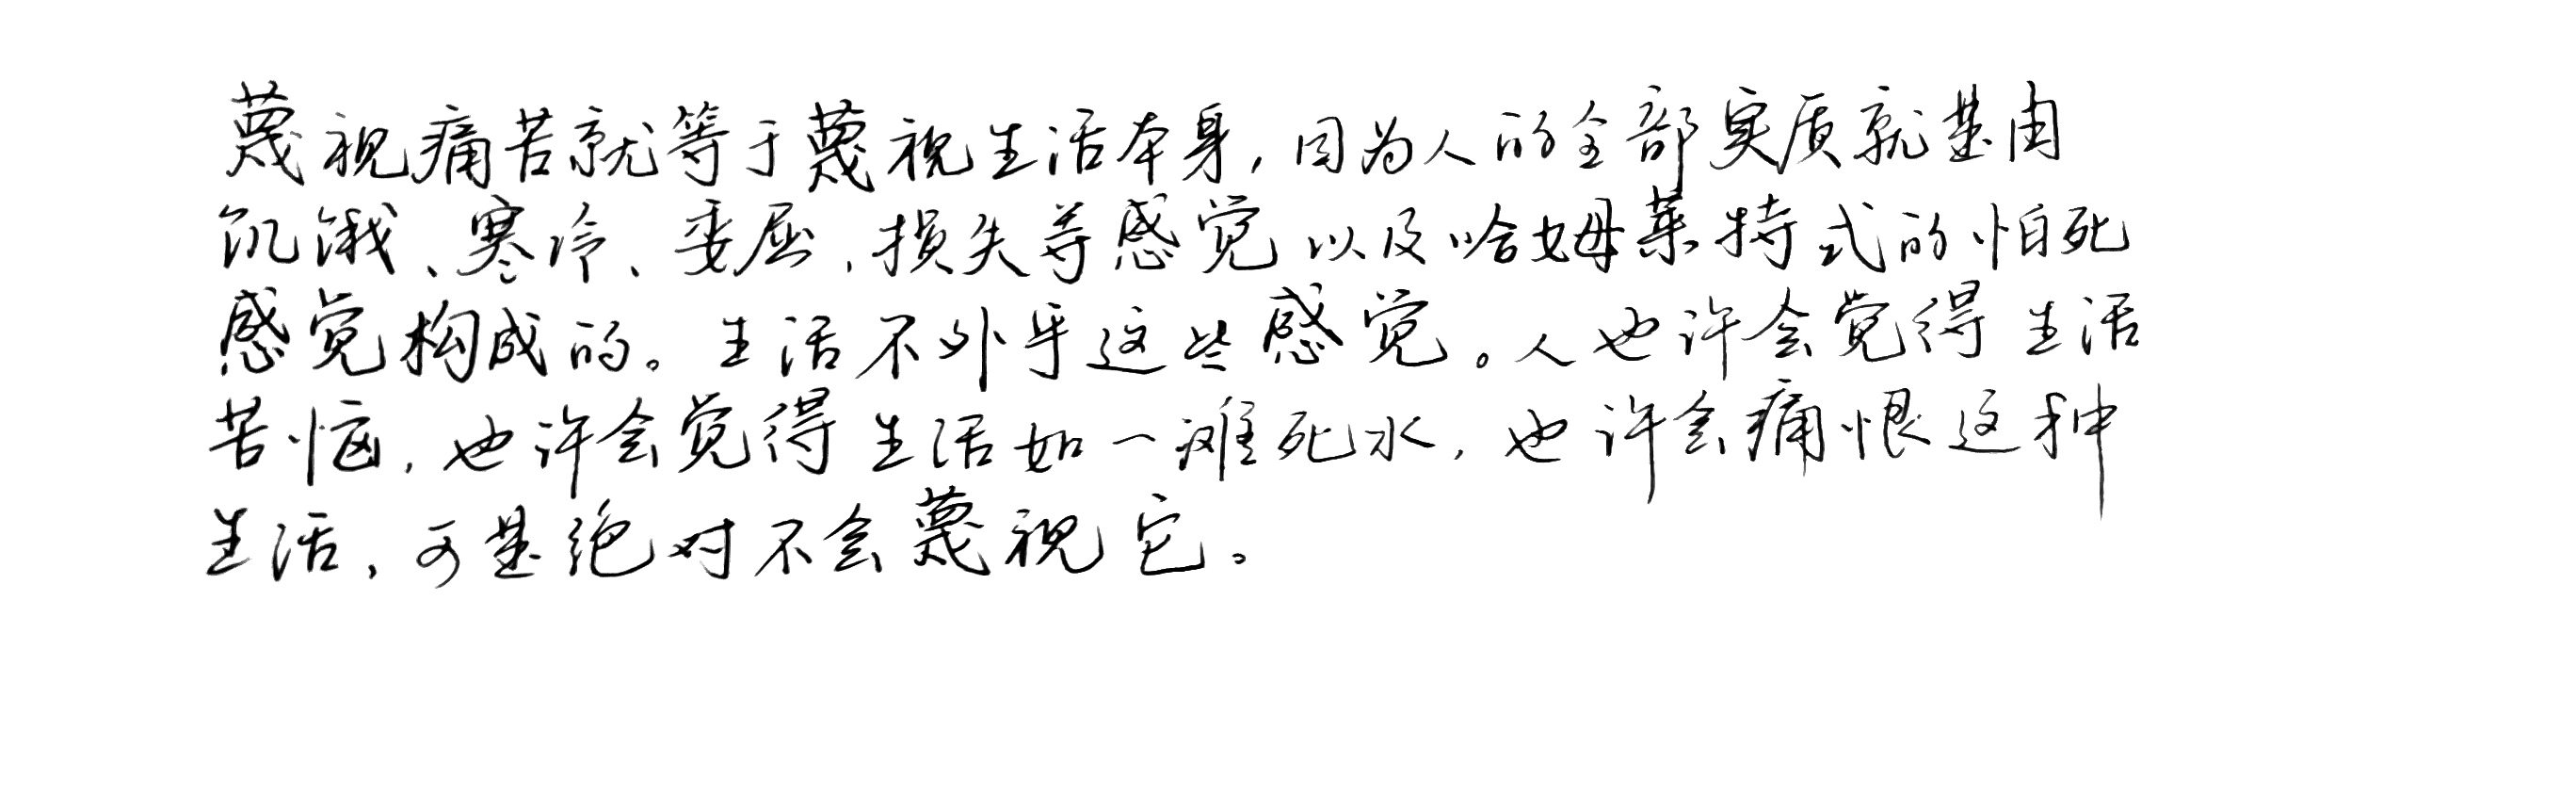 蔑视痛苦就等于蔑视生活本身,因为人的全部实质就是由
饥饿、寒冷、委屈,损失等感觉以及哈姆莱特式的怕死
感觉构成的。生活不外乎这些感觉。人也许会觉得生活
苦恼,也许会觉得生活如一滩死水,也许会痛恨这种
生活,可是绝对不会蔑视它。